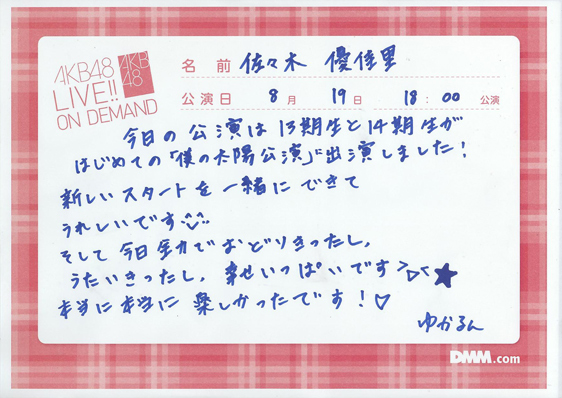 AKB48
LIVE!!
ON DEMAND
AKB
48
名 前 佐々木 優佳里
公演日 8月 19日 18:00 公演
今日の公演は13期生と14期生が
はじめての「僕の太陽公演」に出演しました!
新しいスタートを一緒にできて
うれしいです
そして今日全力でおどりきったし、
うたいきったし、幸せいっぱいです>▽<★
本当に本当に楽しかったです!♡
ゆかるん
DMM.com